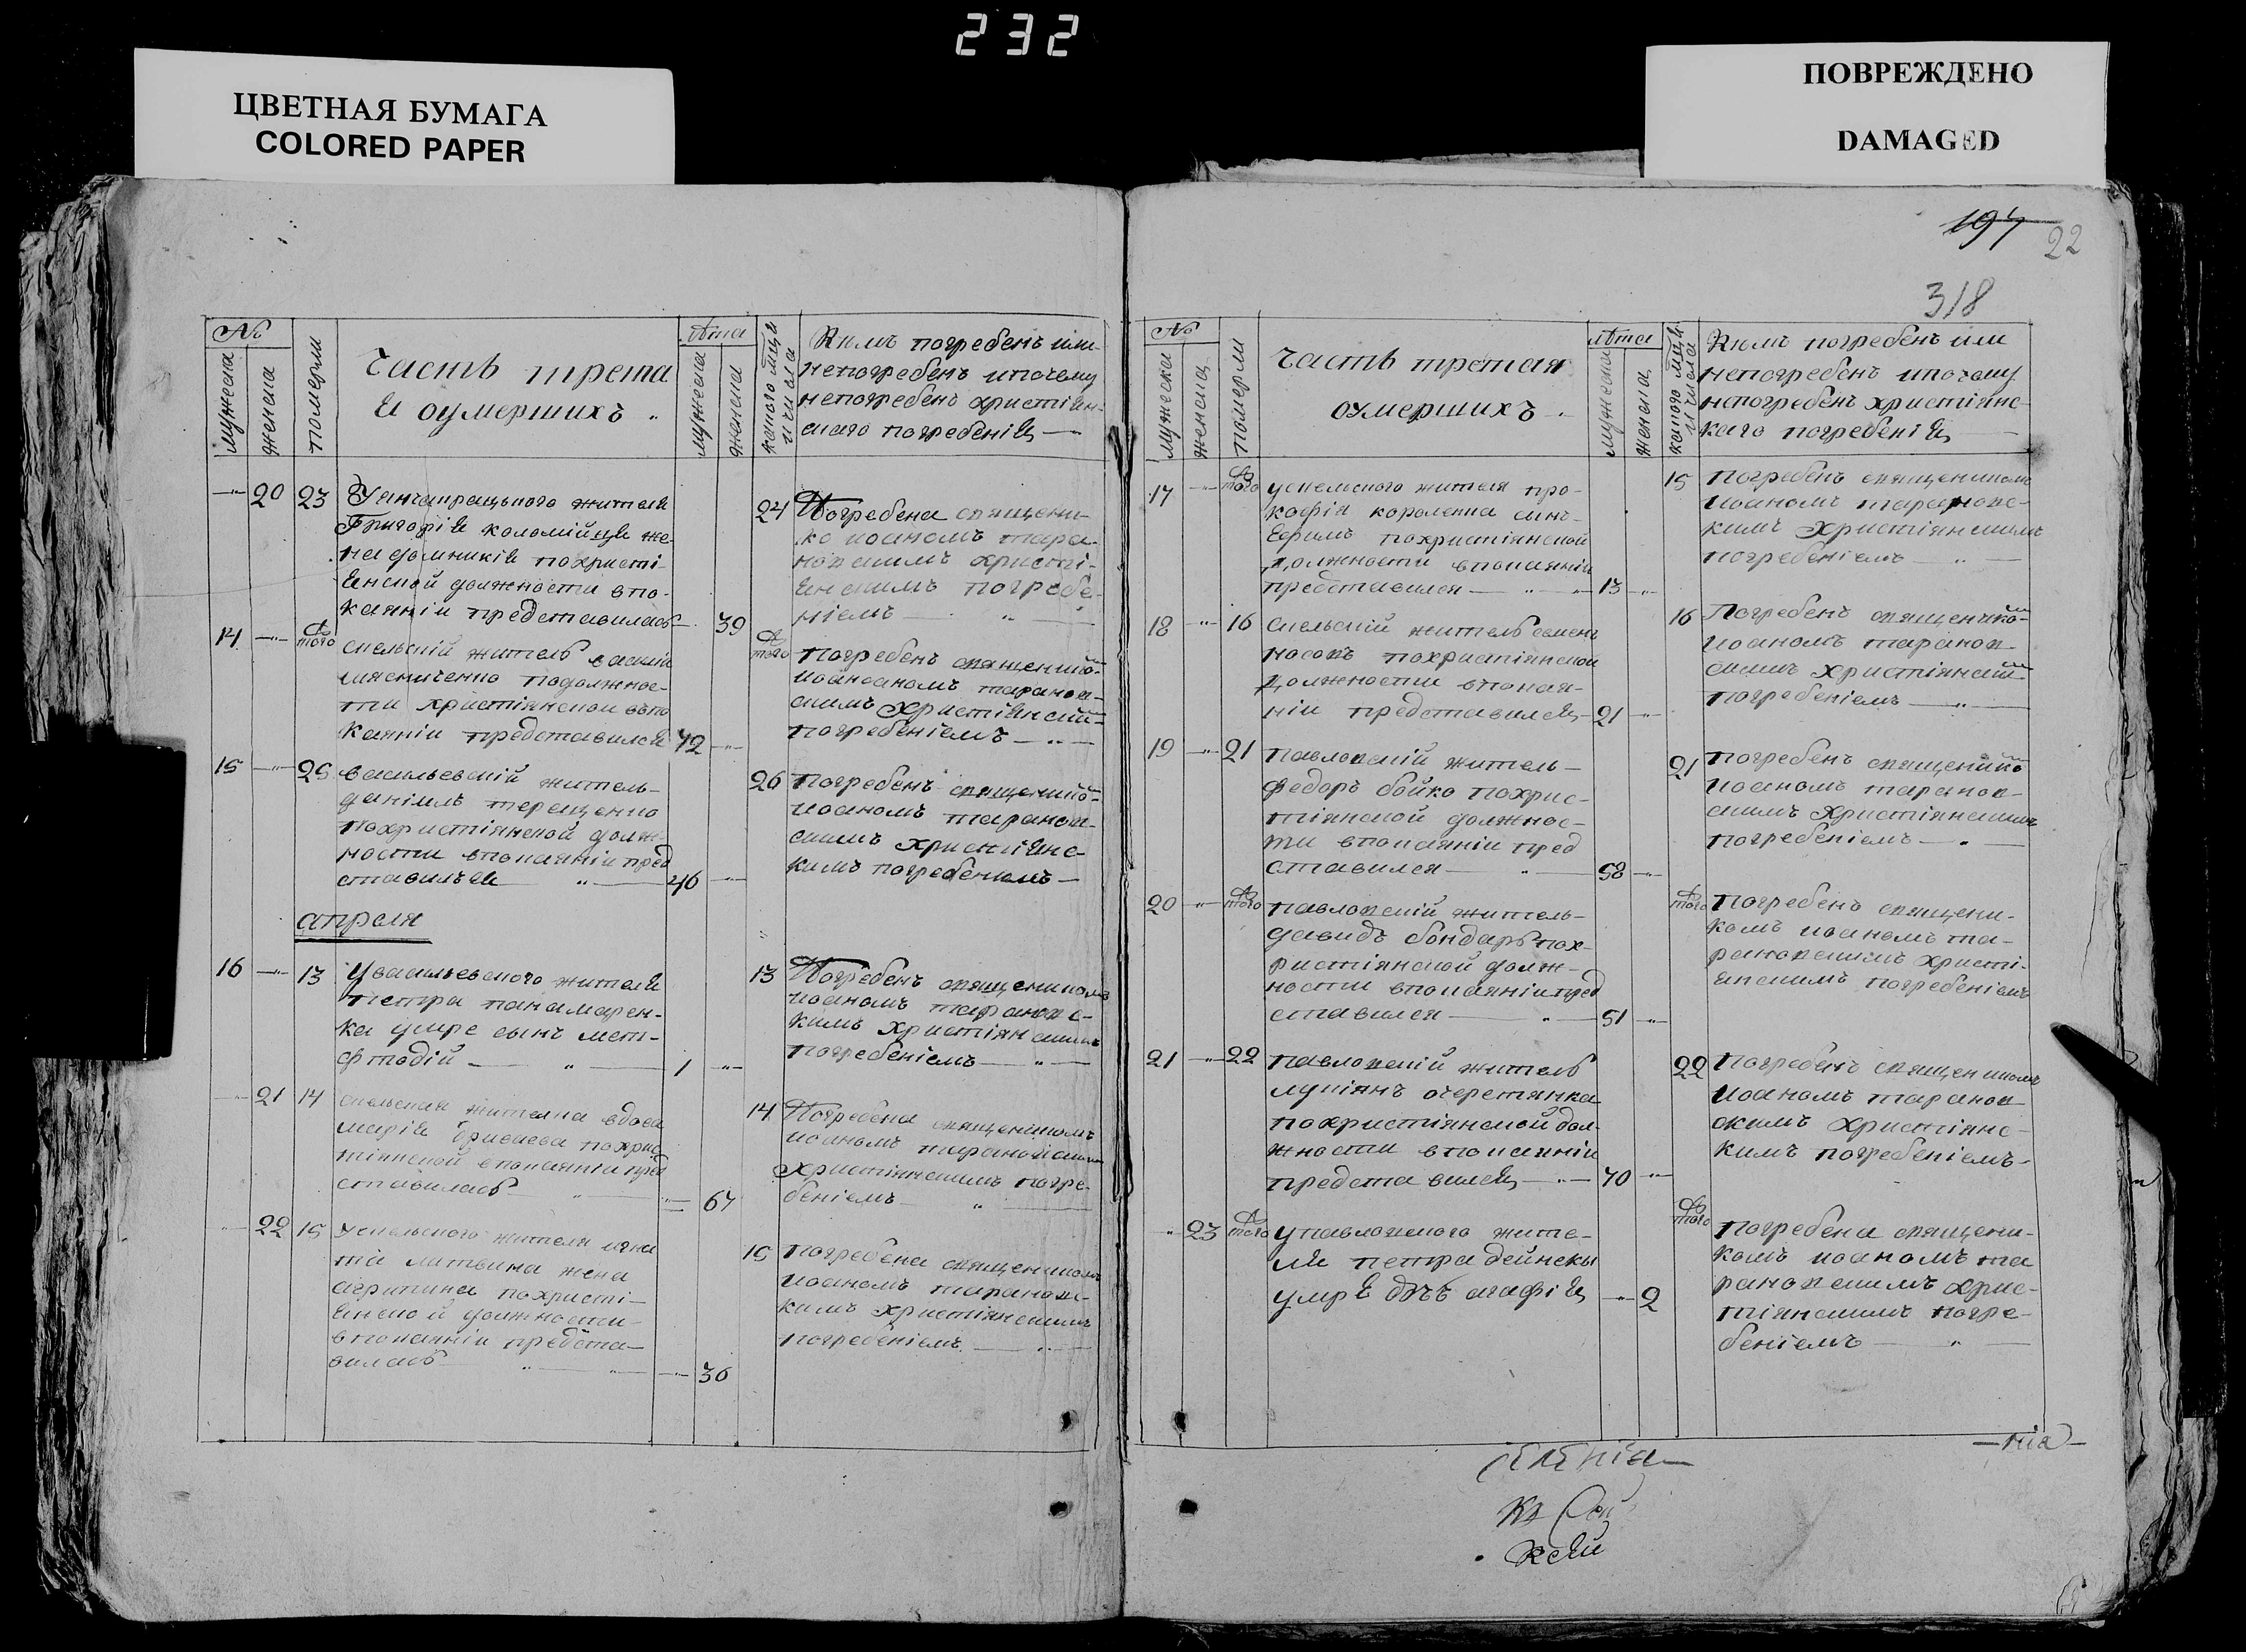 232
ЦВЕТНАЯ БУМАГА
COLORED PAPER
ПОВРЕЖДЕНО
DAMAGED
197
22
318
№
мужеска
женска
померли
Часть трета
я оумершихъ
лѣта
мужеска
женска
каного мцⷭа и числа
Кимъ погребенъ или
непогребенъ ипочему
непогребенъ христіян-
снаго погребенія
20 23
Григорія коломійця же-
на домникія похристі-
янской должности впо-
каяніи представилась 39
24 Погребена священи-
ко иоаномъ тара-
новскимъ христі-
янскимъ погребе-
ніемъ
14 того
сиельскій житель василій
мясниченко подолжнос-
ти христіянской въпо
каяніи представился 72
того погребенъ священико
иоаноаномъ таранов-
скимъ христіянски
погребеніемъ
15 25 васильевскій житель
даніилъ терещенко
похристіянской долж-
ности впокаяніи пред
ставилъся 46
26 погребенъ священико
иоаномъ таранов-
скимъ христіянс-
кимъ погребениемъ
апреля
16 13 Увасильевского жителя
петра панамарен-
ка умре сынъ мет-
фтодій 1
13 Погребенъ священикомъ
иоаномъ таранов-
кимъ христіянскимъ
погребеніемъ
21 14 сиельская жителка вдова
марія похрис
тіянской впокаяніи пред
ставилась 67
14 Погребена священикомъ
иоаномъ тарановским
христіянскимъ погре-
беніемъ
22 15 Усиельского жителя игна
тія литвина жена
похристі-
янской должности
впокаяніи предста-
вилась 36
15 погребена священикомъ
иоаномъ таранов-
кимъ христіянскимъ
погребеніемъ
№
мужеска
женска
померли
Часть третая
оумершихъ
лѣта
мужеска
женска
Кимъ погребенъ или
непогребенъ ипочему
непогребенъ христіянс-
каго погребенія
17 того усиельского жителя про-
кофія короленка синъ
Ефримъ похристіянской
должности впокаяніи
представился 13
15 погребенъ священикомъ
иоаномъ таранове-
кимъ христіянскимъ
погребеніемъ
18 16 сиельскій житель семенъ
носокъ похристіянской
должности впокая-
ніи представился 21
16 Погребенъ священико
иоаномъ таранов
скимъ христіянски
погребеніемъ
19 21 павловскій житель
федоръ бойко похрис-
тіянской должнос-
ти впокаяніи пред
ставился 58
21 погребенъ священико
иоаномъ таранов-
скимъ христіянскимъ
погребеніемъ
20 того павловскій житель
давидъ бондарь пох-
ристіянской долж-
ности впокаяніи пред
ставился 51
того погребенъ священи-
комъ иоаномъ та-
рановскимъ христі-
янскимъ погребеніемъ
21 22 павловскій житель
лукіянъ очеретянка
похристіянской дол-
жности впокаяніи
представился 70
22 Погребенъ священикомъ
иоаномъ таранов
скимъ христіянс-
кимъ погребеніемъ
23 того упавловского жите-
ля петра дейнеки
умре дчъ агафія 2
того погребена священи-
комъ иоаномъ та
рановскимъ хрис-
тіянскимъ погре-
беніемъ